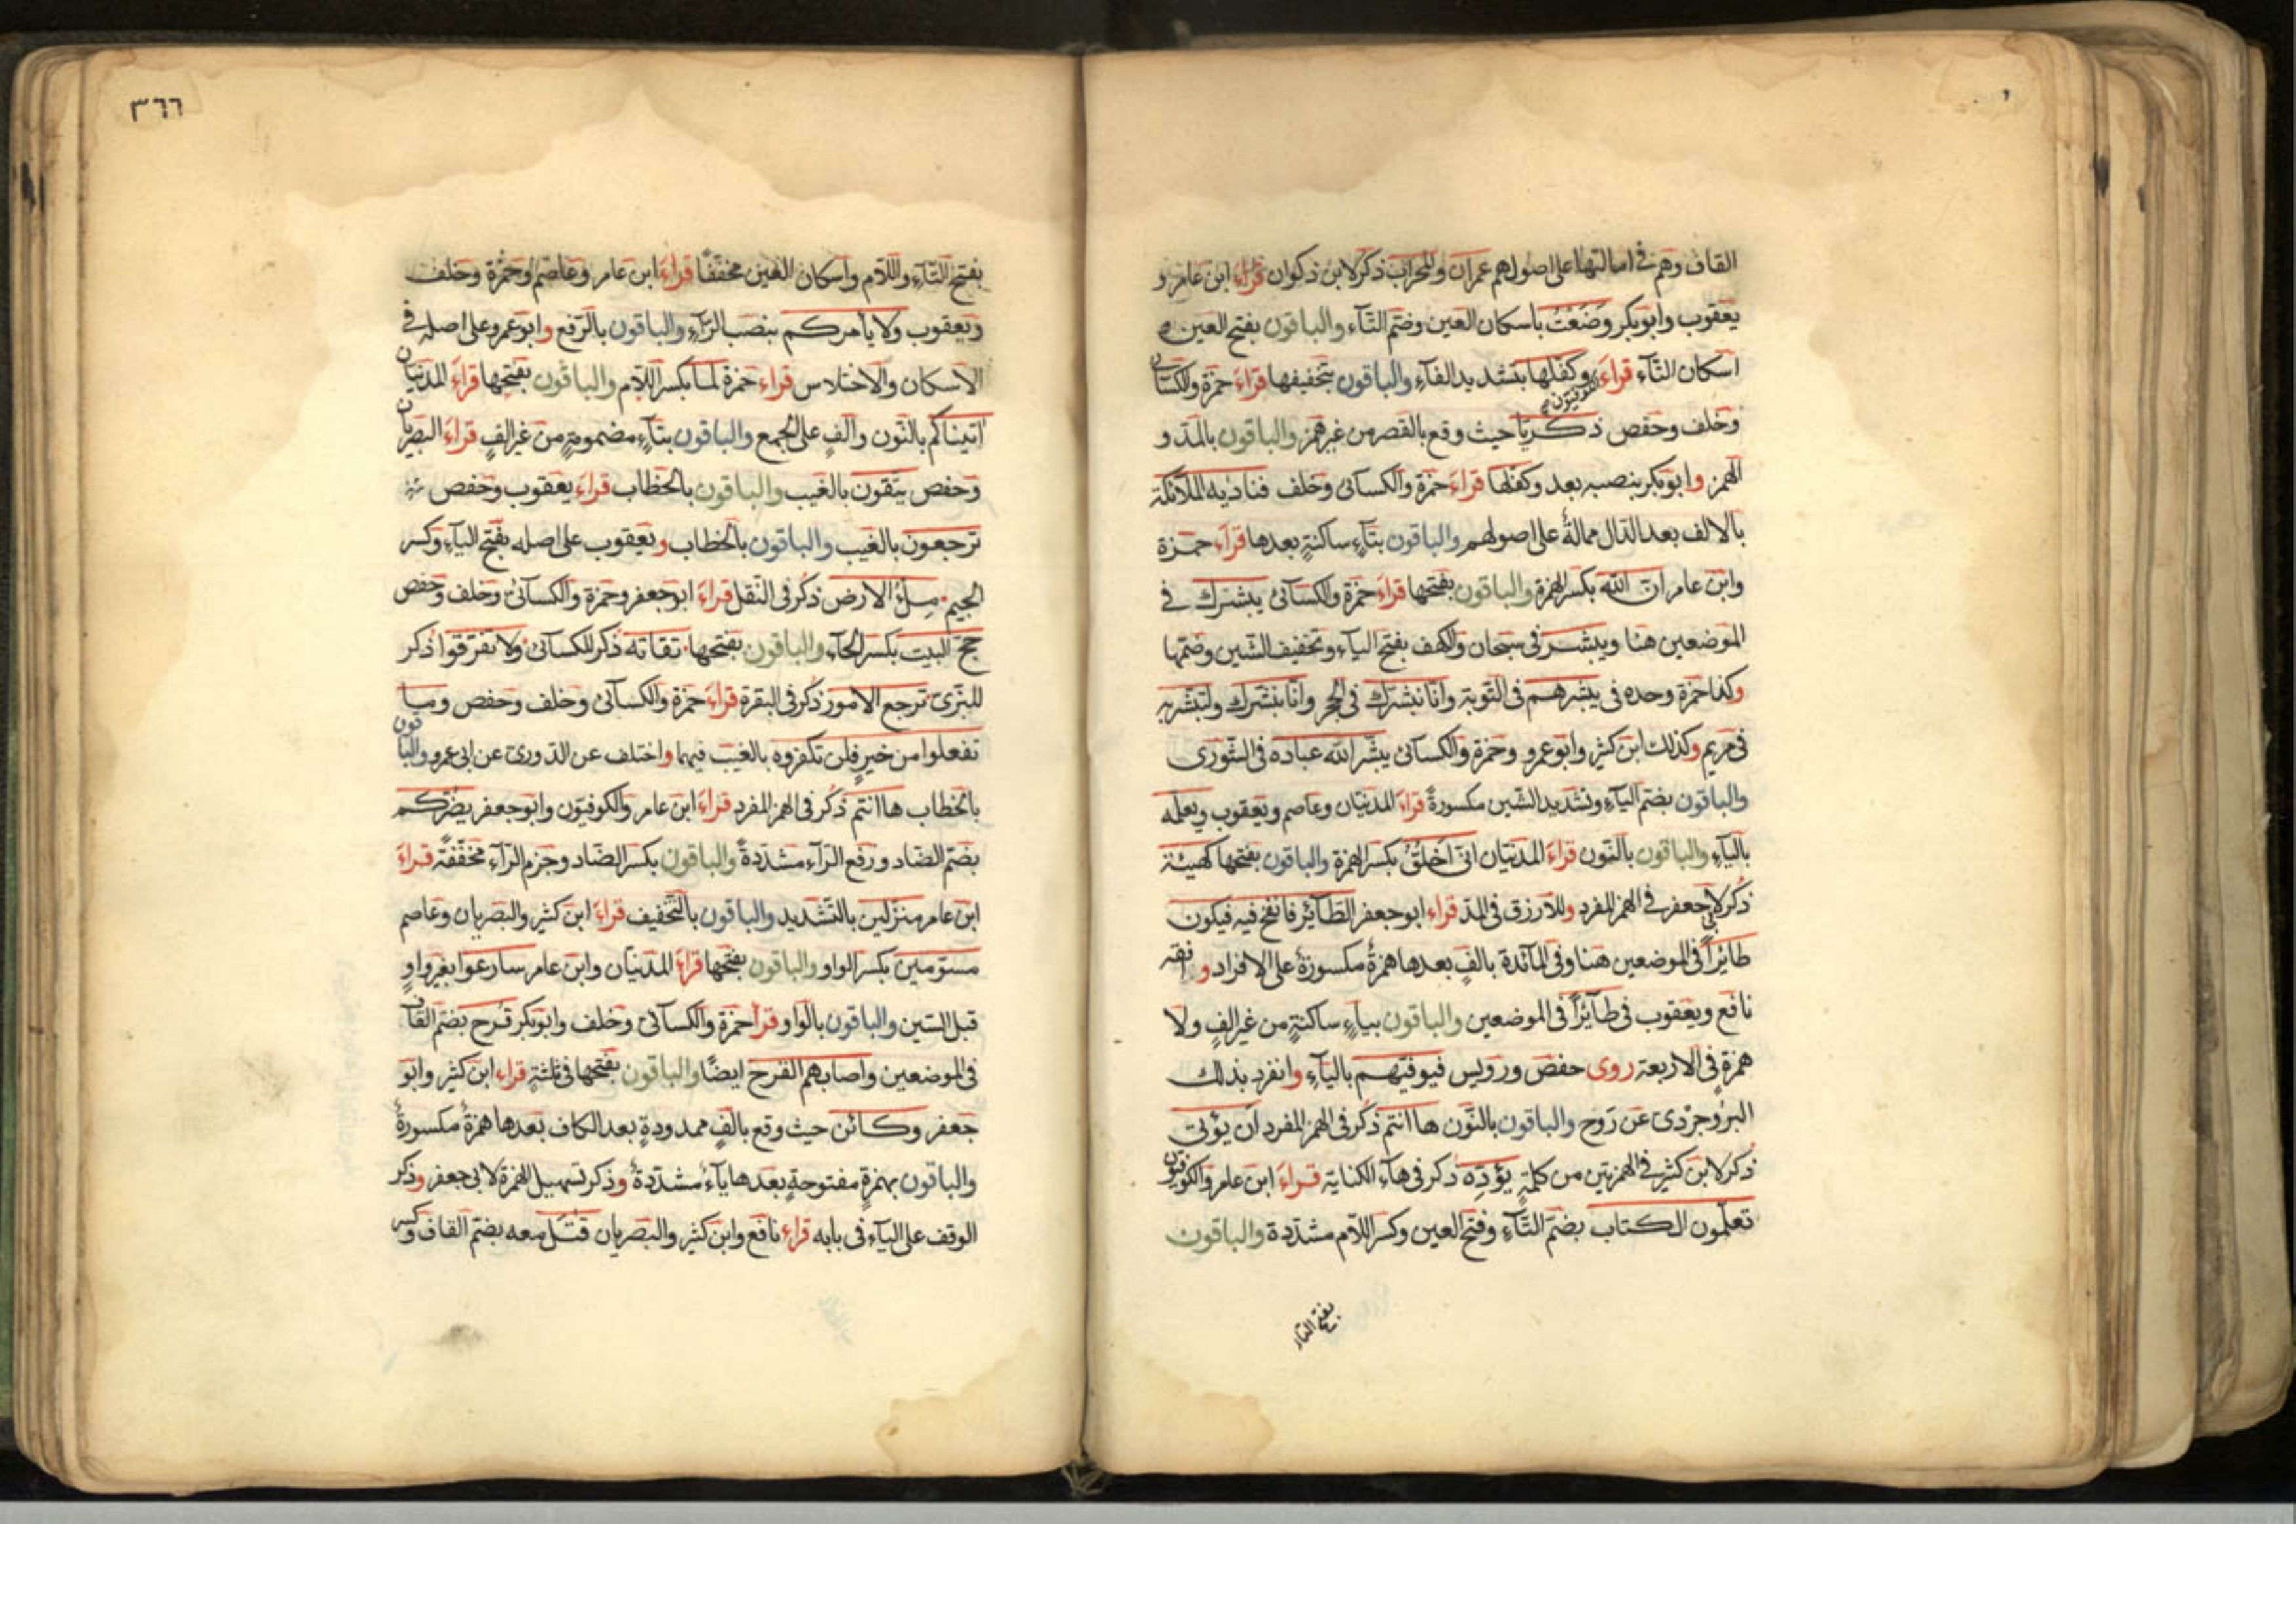 القاف وهم في امالتها على اصولهم عمران والمحراب ذكر لابن ذكوان قراء ابن عامر و
يعقوب وابوبكر وضعت باسكان العين وضم التآء والباقون بفتح العين و
اسكان التآء قراء الكوفيون وكفلها بتشديد الفآء والباقون بتخفيفها قراء حمزة والكسائى
وخلف وحفص ذكريا حيث وقع بالقصر من غير همز والباقون بالمد و
الهمز وابوبكر بنصبه بعد وكفلها قراء حمزة والكسآئى وخلف فناديه الملآئكة
بالالف بعد الدال ممالة على اصولهم والباقون بتآء ساكنة بعدها قراء حمزة
وابن عامر ان الله بكسر الهمزة والباقون بفتحها قراء حمزة والكسآئى يبشرك في
الموضعين هنا ويبشر في سبحان والكهف بفتح اليآء وتخفيف الشين وضمها
وكذا حمزة وحده في يبشرهم في التوبة وانا نبشرك في الحجر وانا نبشرك ولتبشر به
في مريم وكذلك ابن كثير وابو عمرو وحمزة والكسآئى يبشر الله عباده في الشورى
والباقون بضم اليآء وتشديد الشين مكسورة قراء المدنيان وعاصم ويعقوب ويعلمه
باليآء والباقون بالنون قراء المدنيان انى اخلق بكسر الهمزة والباقون بفتحها كهيئة
ذكر لابى جعفر في الهمز المفرد وللازرق في المد قراء ابو جعفر الطآئر فانفخ فيه فيكون
طائرا في الموضعين هنا وفي المآئدة بالف بعدها همزة مكسورة على الافراد وافقه
نافع ويعقوب في طآئرا في الموضعين والباقون بيآء ساكنة من غير الف ولا
همزة في الاربعة روى حفص ورويس فيوفيهم باليآء وانفرد بذلك
البروجردى عن روح والباقون بالنون ها انتم ذكر في الهمز المفرد ان يؤتى
ذكر لابن كثير في الهمزتين من كلمة يؤده ذكر في هآء الكناية قراء ابن عامر والكوفيون
تعلمون الكتاب بضم التآء وفتح العين وكسر اللام مشددة والباقون
بفتح التآء
٣٦٦
بفتح التآء واللام واسكان العين مخففا قراء ابن عامر وعاصم وحمزة وخلف
ويعقوب ولا يأمركم بنصب الرآء والباقون بالرفع وابوعمرو على اصله في
الاسكان والاختلاس قراء حمزة لما بكسر اللام والباقون بفتحها قراء المدنيان
اتيناكم بالنون والف على الجمع والباقون بتآء مضمومة من غير الف قراء البصريان
وحفص يبغون بالغيب والباقون بالخطاب قراء يعقوب وحفص
ترجعون بالغيب والباقون بالخطاب ويعقوب على اصله بفتح اليآء وكسر
الجيم ملؤ الارض ذكر في النقل قراء ابو جعفر وحمزة والكسآئى وخلف وحفص
حج البيت بكسر الحآء والباقون بفتحها تقاته ذكر للكسآئى ولا تفرقوا ذكر
للبزى ترجع الامور ذكر في البقرة قراء حمزة والكسآئى وخلف وحفص وما
تفعلوا من خير فلن تكفروه بالغيب فيهما واختلف عن الدورى عن ابى عمرو والباقون
بالخطاب ها انتم ذكر في الهمز المفرد قراء ابن عامر والكوفيون وابو جعفر يضركم
بضم الضاد ورفع الرآء مشددة والباقون بكسر الضاد وجزم الرآء مخففة قراء
ابن عامر منزلين بالتشديد والباقون بالتخفيف قراء ابن كثير والبصريان وعاصم
مسومين بكسر الواو والباقون بفتحها قراء المدنيان وابن عامر سارعوا بغير واو
قبل السين والباقون بالواو وقرأ حمزة والكسآئى وخلف وابوبكر قرح بضم القاف
في الموضعين واصابهم القرح ايضا والباقون بفتحها في ثلثة قراء ابن كثير وابو
جعفر وكائن حيث وقع بالف ممدودة بعد الكاف بعدها همزة مكسورة
والباقون بهمزة مفتوحة بعدها يآء مشددة وذكر تسهيل الهمزة لابى جعفر وذكر
الوقف على اليآء في بابه قراء نافع وابن كثير والبصريان قتل معه بضم القاف وكسر